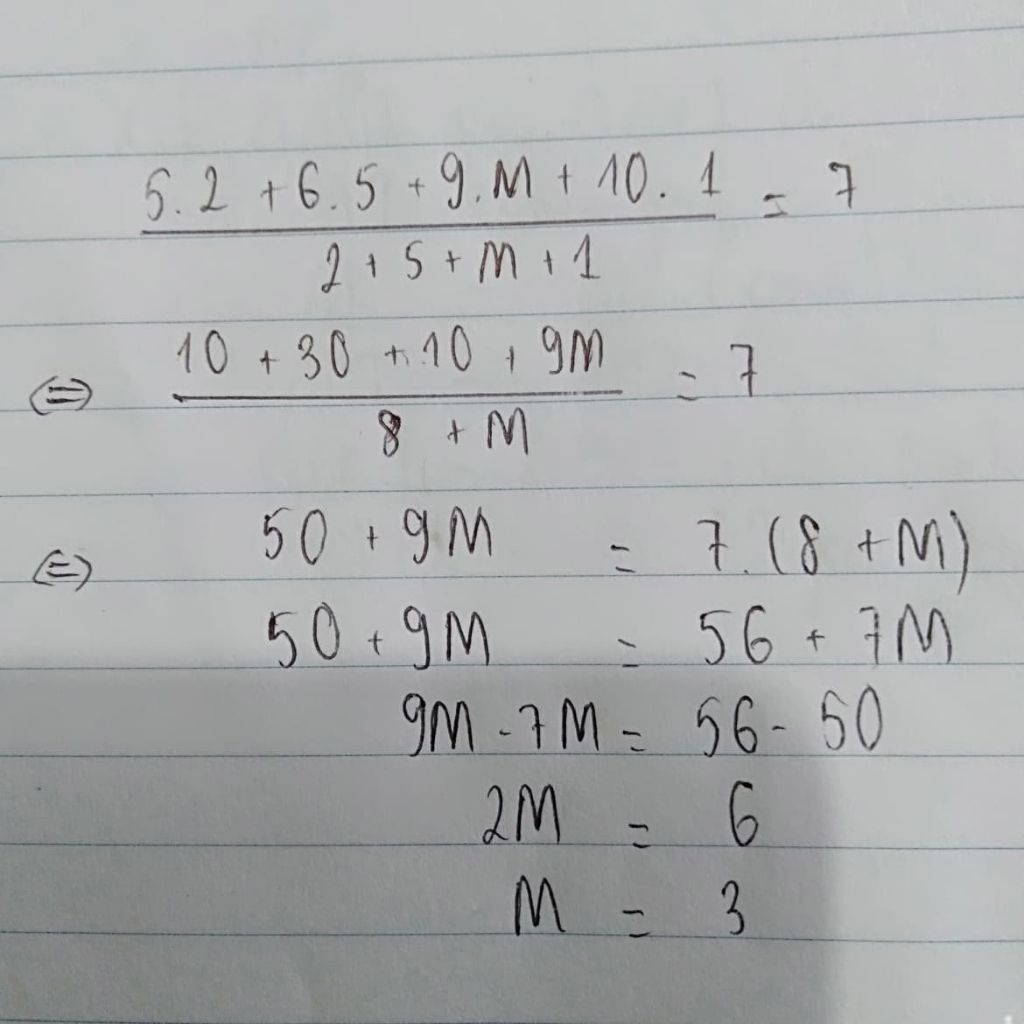 5.2 + 6.5 + 9.M + 10.1 = 7
2 + 5 + M + 1
⇔ 10 + 30 + 10 + 9M = 7
8 + M
⇔ 50 + 9M = 7.(8 + M)
50 + 9M = 56 + 7M
9M - 7M = 56 - 50
2M = 6
M = 3